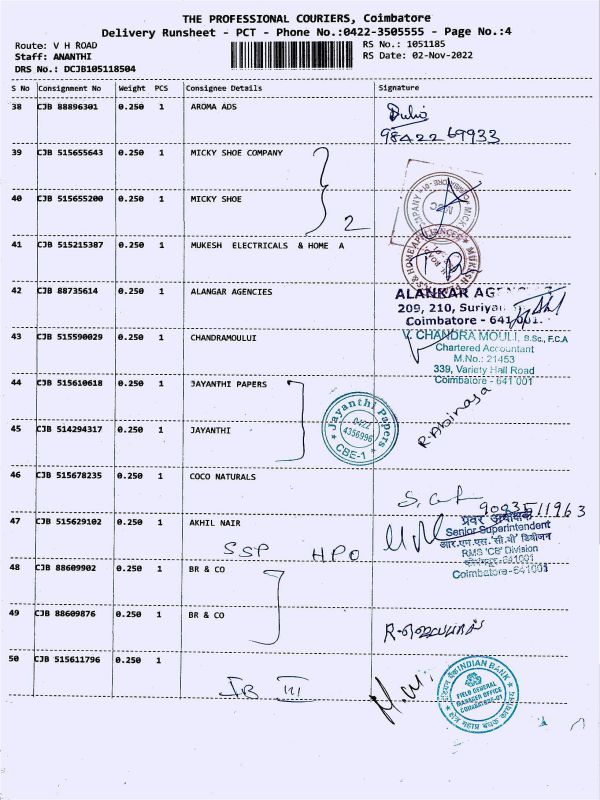 THE PROFESSIONAL COURIERS, Coimbatore
Delivery Runsheet - PCT - Phone No.:0422-3505555 - Page No.:4
Route: V H ROAD
Staff: ANANTHI
DRS No.: DCJB105118504
RS No.: 1051185
RS Date: 02-Nov-2022
S No Consignment No Weight PCS Consignee Details Signature
38 CJB 88896301 0.250 1 AROMA ADS
98422 69933
39 CJB 515655643 0.250 1 MICKY SHOE COMPANY
40 CJB 515655200 0.250 1 MICKY SHOE
2
41 CJB 515215387 0.250 1 MUKESH ELECTRICALS & HOME A
42 CJB 88735614 0.250 1 ALANGAR AGENCIES
ALANKAR
209, 210, Suriya
Coimbatore - 641 001.
43 CJB 515590029 0.250 1 CHANDRAMOULUI
V. CHANDRA MOULI, B.Sc., F.C.A
Chartered Accountant
M.No.: 21453
339, Variety Hall Road
Coimbatore - 641 001
44 CJB 515610618 0.250 1 JAYANTHI PAPERS
Jayanthi Papers
0422
4356996
CBE-1
R.Abinaya
45 CJB 514294317 0.250 1 JAYANTHI
46 CJB 515678235 0.250 1 COCO NATURALS
47 CJB 515629102 0.250 1 AKHIL NAIR
SSP HPO
प्रवर अधीक्षक
Senior Superintendent
आर.एम.एस.'सी.बी' डिवीजन
RMS 'CB' Division
Coimbatore-641001
48 CJB 88609902 0.250 1 BR & CO
49 CJB 88609876 0.250 1 BR & CO
50 CJB 515611796 0.250 1
IB III
INDIAN BANK
FIELD GENERAL
MANAGER OFFICE
4